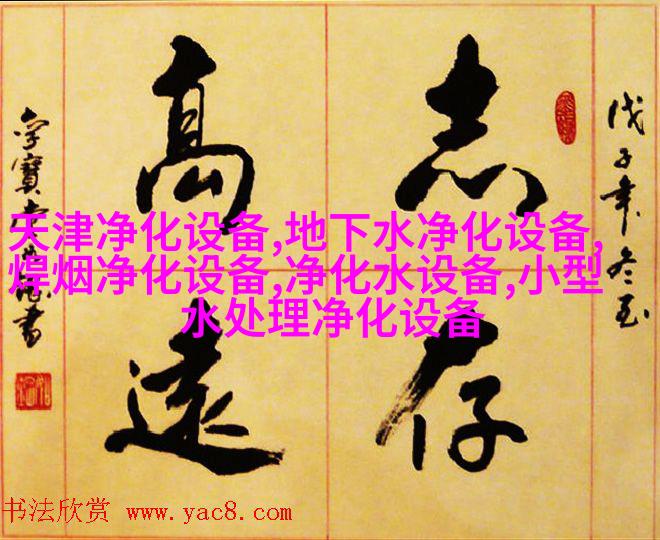 志存
高遠
戊子年冬至
天津净化设备,地下水净化设备,
焊烟净化设备,净化水设备,小型
水处理净化设备
书法欣赏 www.yac8.com